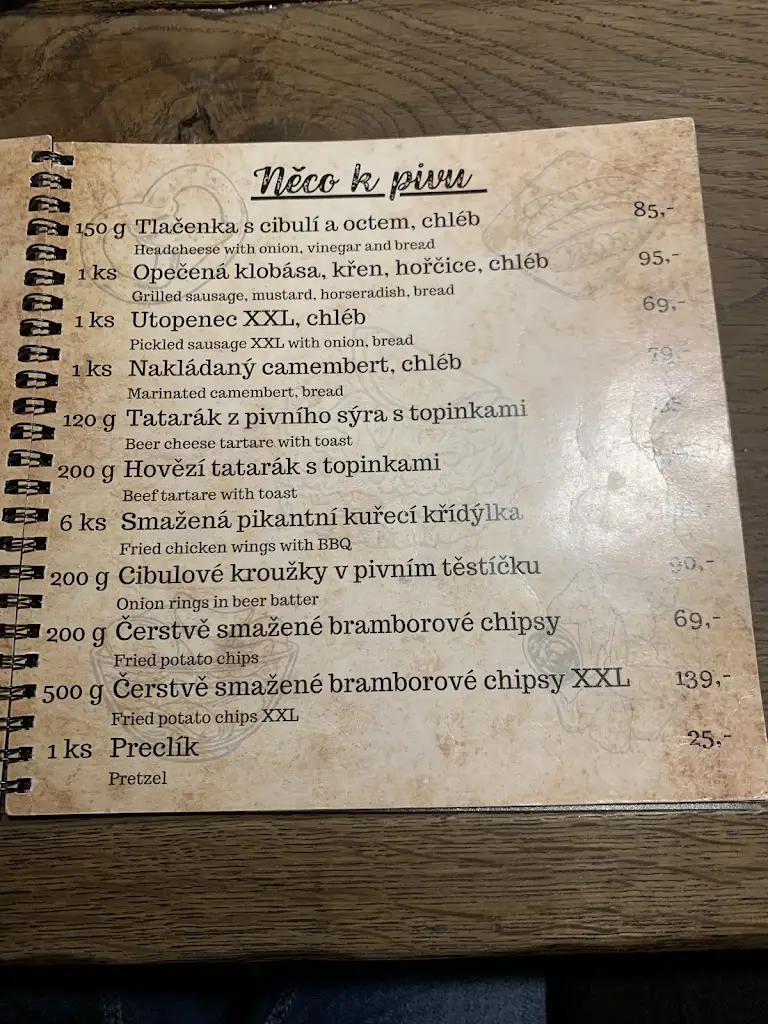 Něco k pivu
150 g Tlačenka s cibulí a octem, chléb 85,-
Headcheese with onion, vinegar and bread
1 ks Opečená klobása, křen, hořčice, chléb 95,-
Grilled sausage, mustard, horseradish, bread
1 ks Utopenec XXL, chléb 69,-
Pickled sausage XXL with onion, bread
1 ks Nakládaný camembert, chléb 79,-
Marinated camembert, bread
120 g Tatarák z pivního sýra s topinkami
Beer cheese tartare with toast
200 g Hovězí tatarák s topinkami
Beef tartare with toast
6 ks Smažená pikantní kuřecí křídýlka
Fried chicken wings with BBQ
200 g Cibulové kroužky v pivním těstíčku 90,-
Onion rings in beer batter
200 g Čerstvě smažené bramborové chipsy 69,-
Fried potato chips
500 g Čerstvě smažené bramborové chipsy XXL 139,-
Fried potato chips XXL
1 ks Preclík 25,-
Pretzel